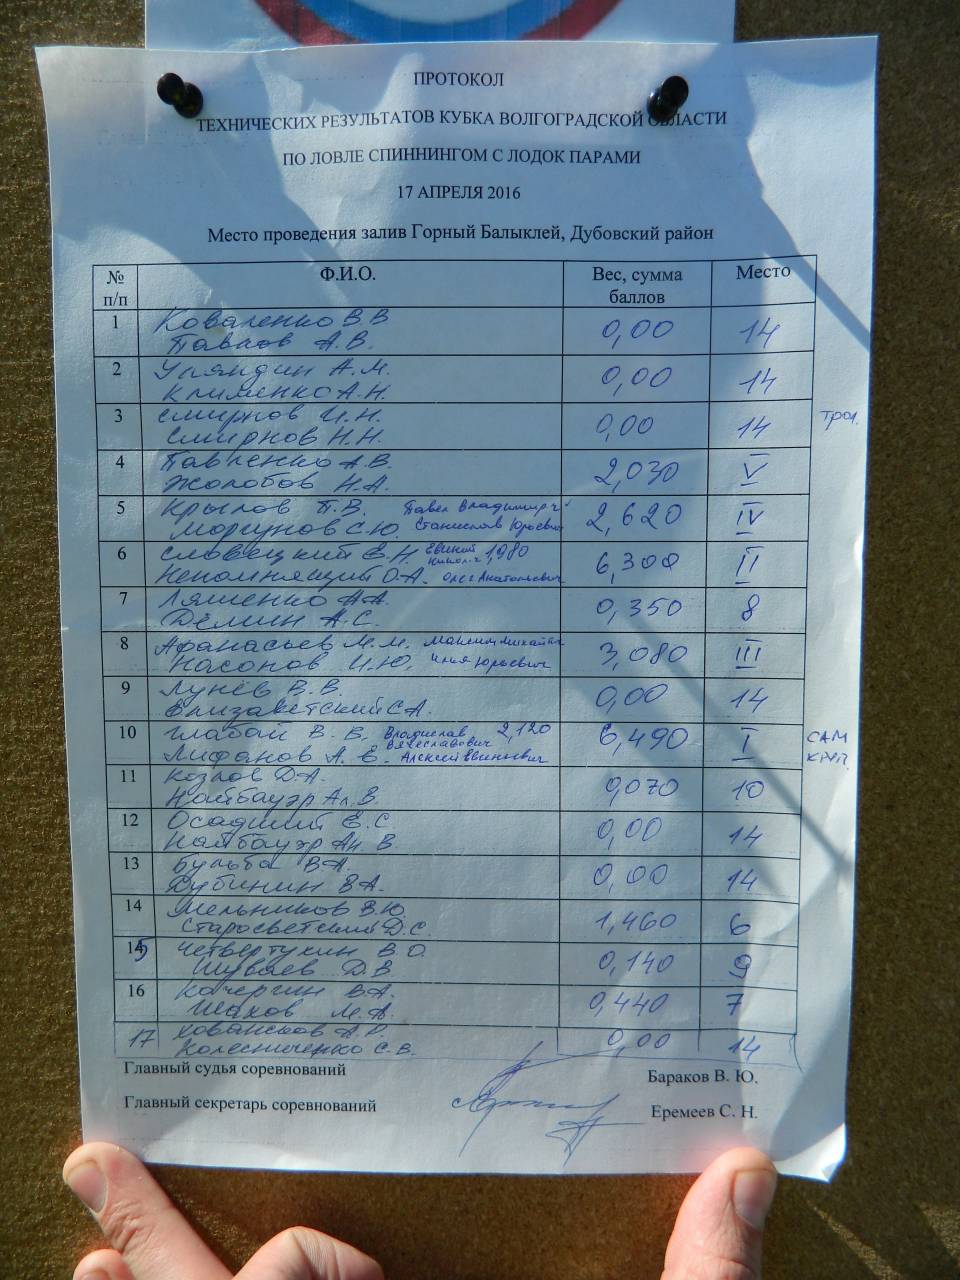 ПРОТОКОЛ
ТЕХНИЧЕСКИХ РЕЗУЛЬТАТОВ КУБКА ВОЛГОГРАДСКОЙ ОБЛАСТИ
ПО ЛОВЛЕ СПИННИНГОМ С ЛОДОК ПАРАМИ
17 АПРЕЛЯ 2016
Место проведения залив Горный Балыклей, Дубовский район
№ п/п Ф.И.О. Вес, сумма баллов Место
1 Коваленко В.В. 0,00 14
Павлов А.В.
2 Уляндин А.М. 0,00 14
Клименко А.Н.
3 Смирнов И.Н. 0,00 14
Смирнов Н.Н.
4 Павленко А.В. 2,030 V
Жолобов Н.А.
5 Крылов П.В. Павел Владимир-ч 2,620 IV
Моргунов С.Ю. Станислав Юрьевич
6 Словецкий Е.Н. 1,980 6,300 II
Непомнящий О.А. Олег Анатольевич
7 Ляшенко А.А. 0,350 8
Дёмин А.С.
8 Афанасьев М.М. Максим Михайл 3,080 III
Насонов И.Ю. Илья Юрьевич
9 Лунёв В.В. 0,00 14
Елизаветский С.А.
10 Глабай В.В. Владислав Вячеславович 2,120 6,490 I САМ КРУП.
Лифанов А.Е. Алексей Евгеньевич
11 Козлов Д.А. 0,070 10
Найбауэр Ал.В.
12 Осадчий Е.С. 0,00 14
Найбауэр Ан.В
13 Бульба В.А. 0,00 14
Дубинин В.А.
14 Мельников В.Ю. 1,460 6
Старосветский Д.С.
15 Четвертухин В.О. 0,140 9
Шуваев Д.В.
16 Кочергин В.А. 0,440 7
Шахов М.А.
17 0,00 14
Колесниченко С.В.
Главный судья соревнований Бараков В. Ю.
Главный секретарь соревнований Еремеев С. Н.